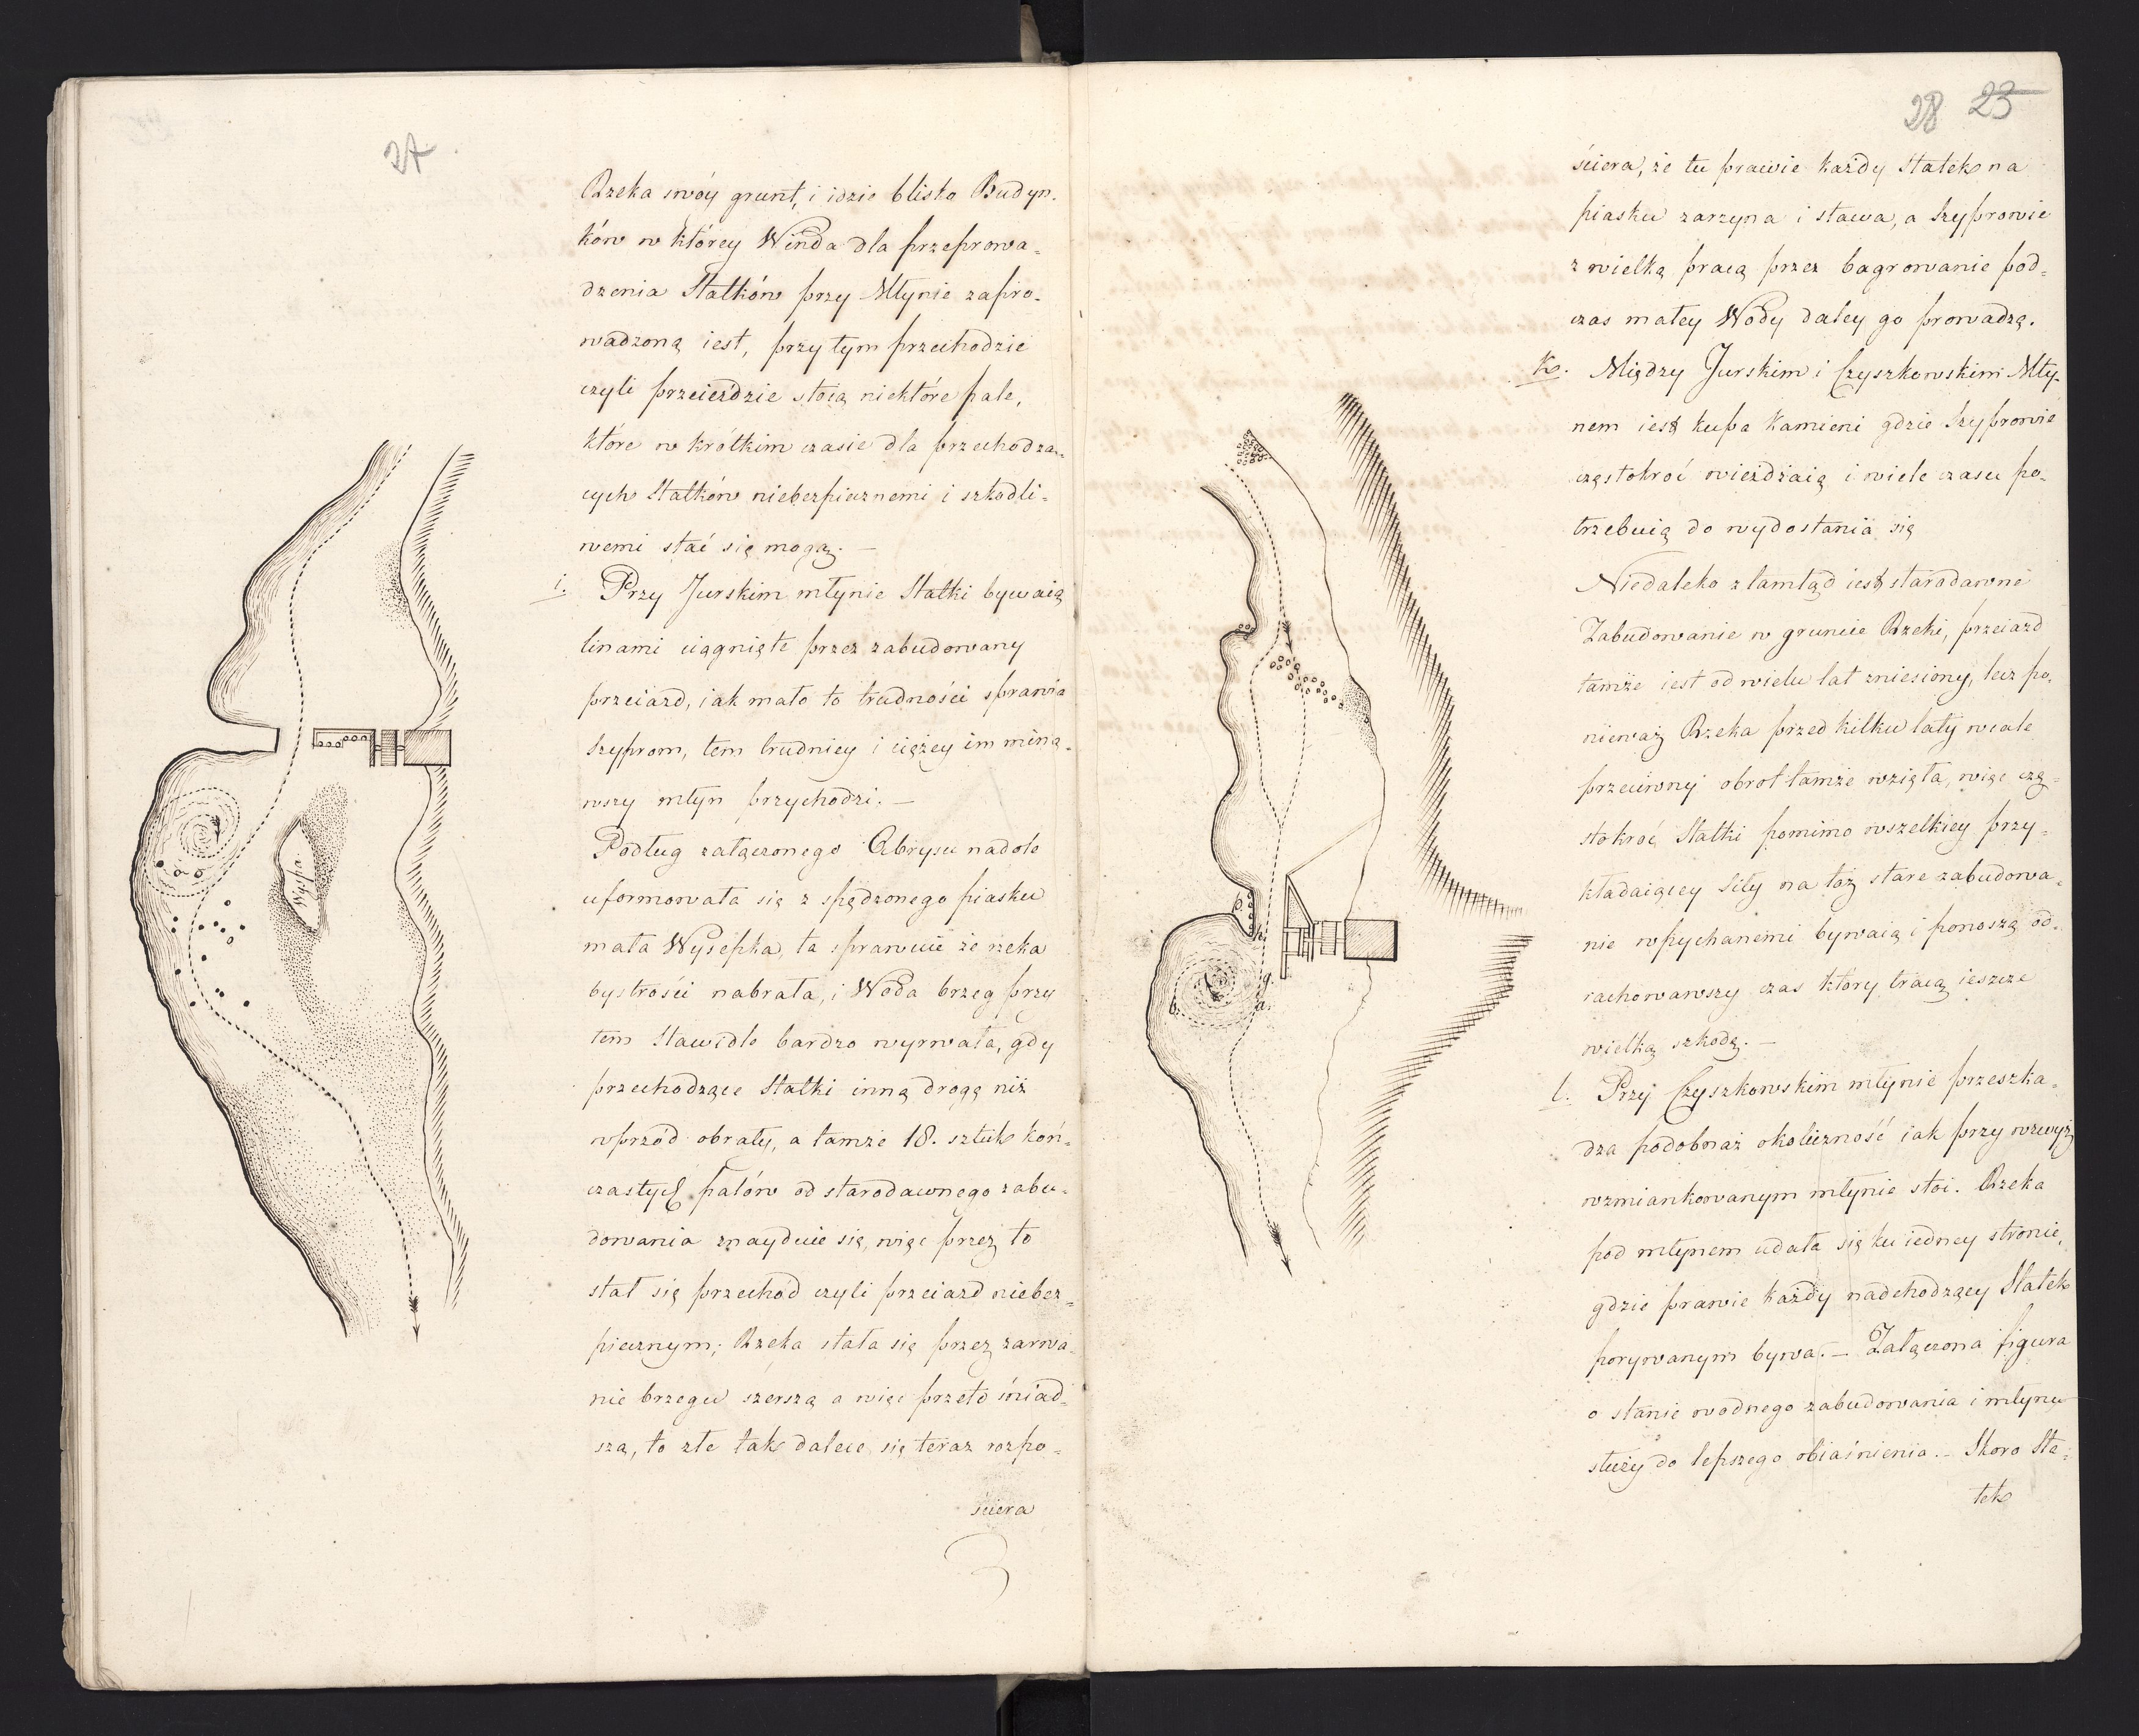 27
Rzeka swóy grunt, i idzie blisko Budyn-
ków w którey Winda dla przeprowa-
dzenia Statków przy Młynie zapro-
wadzoną iest, przy tym przechodzie
czyli przeieździe stoią niektóre pale,
które w krótkim czasie dla przechodzą-
cych Statków niebezpiecznemi i szkodli-
wemi stać się mogą. —
i. Przy Jurskim młynie Statki bywaią
linami ciągnięte przez zabudowany
przeiazd, iak mało to trudności sprawia
Szyprom, tem trudniey i ciężey im miną-
wszy młyn przychodzi. —
Podług załączonego Abrysu nadole
uformowała się z spędzonego piasku
mała Wysepka, ta sprawuie że rzeka
bystrości nabrała, i Woda brzeg przy
tem Stawidle bardzo wyrwała, gdy
przechodzące Statki inną drogę niż
wprzód obrały, a tamże 18. sztuk koń-
czastych palów od starodawnego zabu-
dowania znayduie się, więc przez to
stał się przechód czyli przeiazd niebez-
piecznym; Rzeka stała się przez zarwa-
nie brzegu szerszą a więc przeto śniad-
szą, to złe tak dalece się teraz rozpo-
ściera
Wyspa
28 23
ściera, że tu prawie każdy Statek na
piasku zarzyna i stawa, a Szyprowie
z wielką pracą przez bagrowanie pod-
czas małey Wody daley go prowadzą.
K. Między Jurskim i Czyszkowskim Mły-
nem iest kupa Kamieni gdzie Szyprowie
częstokroć wieżdżaią i wiele czasu po-
trzebuią do wydostania się
Niedaleko z tamtąd iest starodawne
Zabudowanie w gruncie Rzeki, przeiazd
tamże iest od wielu lat zniesiony, lecz po-
nieważ Rzeka przed kilku laty wcale
przeciwny obrot tamże wzięła, więc czę-
stokroć Statki pomimo wszelkiey przy-
kładaiącey Siły na toż stare zabudowa-
nie wpychanemi bywaią i ponoszą od-
rachowawszy czas który tracą ieszcze
wielką szkodę. —
l. Przy Czyszkowskim młynie przeszka-
dza podobnaż okoliczność iak przy wzwyż
wzmiankowanym młynie stoi. Rzeka
pod młynem udała się ku iedney stronie,
gdzie prawie każdy nadchodzący Statek
porywanym bywa. — Załączona figura
o stanie wodnego zabudowania i młynu
służy do lepszego obiaśnienia. — Skoro Sta-
tek